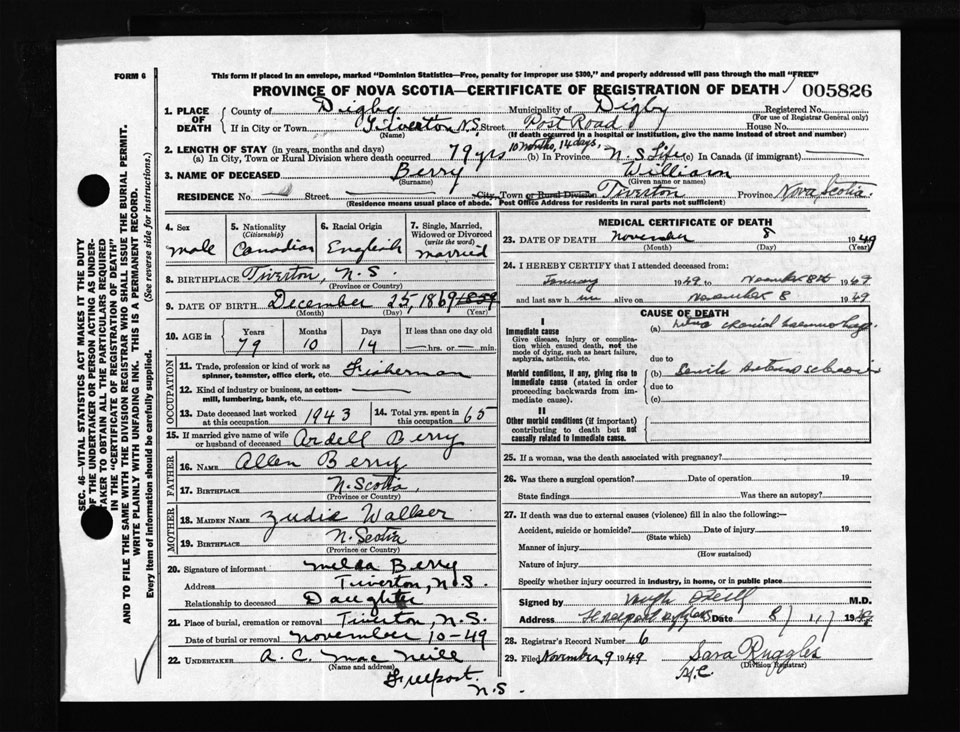 FORM 6
This form if placed in an envelope, marked "Dominion Statistics—Free, penalty for improper use $300," and properly addressed will pass through the mail "FREE"
PROVINCE OF NOVA SCOTIA—CERTIFICATE OF REGISTRATION OF DEATH 005826
1. PLACE OF DEATH
County of Digby Municipality of Digby Registered No.
(For use of Registrar General only)
If in City or Town Tiverton N.S. Street Post Road House No.
(Name) (If death occurred in a hospital or institution, give the name instead of street and number)
2. LENGTH OF STAY (in years, months and days)
(a) In City, Town or Rural Division where death occurred 79 yrs 10 months, 14 days, (b) In Province N.S. Life (c) In Canada (if immigrant)
3. NAME OF DECEASED Berry William
(Surname) (Given name or names)
RESIDENCE No. Street City, Town or Rural Division Tiverton Province Nova Scotia
(Residence means usual place of abode. Post Office Address for residents in rural parts not sufficient)
4. Sex male
5. Nationality (Citizenship) Canadian
6. Racial Origin English
7. Single, Married, Widowed or Divorced (write the word) married
8. BIRTHPLACE Tiverton, N.S.
(Province or Country)
9. DATE OF BIRTH December 25, 1869 1859
(Month) (Day) (Year)
10. AGE in Years Months Days If less than one day old
79 10 14 hrs. or min.
OCCUPATION
11. Trade, profession or kind of work as spinner, teamster, office clerk, etc. Fisherman
12. Kind of industry or business, as cotton-mill, lumbering, bank, etc.
13. Date deceased last worked at this occupation 1943
14. Total yrs. spent in this occupation 65
15. If married give name of wife or husband of deceased Ardell Berry
FATHER
16. NAME Allen Berry
17. BIRTHPLACE N. Scotia,
(Province or Country)
MOTHER
18. MAIDEN NAME Zudie Walker
19. BIRTHPLACE N. Scotia
(Province or Country)
20. Signature of informant Melda Berry
Address Tiverton, N.S.
Relationship to deceased Daughter
21. Place of burial, cremation or removal Tiverton, N.S.
Date of burial or removal November 10-49
22. UNDERTAKER A. C. MacNeill
(Name and address)
Freeport. N.S.
MEDICAL CERTIFICATE OF DEATH
23. DATE OF DEATH November 8 1949
(Month) (Day) (Year)
24. I HEREBY CERTIFY that I attended deceased from:
January 1949 to November 8th 1949
and last saw him alive on November 8 1949
CAUSE OF DEATH
I
Immediate cause (a) cranial haemorrhage
Give disease, injury or complication which caused death, not the mode of dying, such as heart failure, asphyxia, asthenia, etc.
due to
Morbid conditions, if any, giving rise to immediate cause (stated in order proceeding backwards from immediate cause).
(b) Senile arteriosclerosis
due to
(c)
II
Other morbid conditions (if important) contributing to death but not causally related to immediate cause.
25. If a woman, was the death associated with pregnancy?
26. Was there a surgical operation? Date of operation 19
State findings Was there an autopsy?
27. If death was due to external causes (violence) fill in also the following:—
Accident, suicide or homicide? Date of injury 19
(State which)
Manner of injury
(How sustained)
Nature of injury
Specify whether injury occurred in industry, in home, or in public place
Signed by M.D.
Address Freeport Date 8/11/1949
28. Registrar's Record Number 6
29. Filed November 9 1949 Sara Ruggles
(Division Registrar)
SEC. 46—VITAL STATISTICS ACT MAKES IT THE DUTY
OF THE UNDERTAKER OR PERSON ACTING AS UNDER-
TAKER TO OBTAIN ALL THE PARTICULARS REQUIRED
IN THE "CERTIFICATE OF REGISTRATION OF DEATH"
AND TO FILE THE SAME WITH THE DIVISION REGISTRAR WHO SHALL ISSUE THE BURIAL PERMIT.
WRITE PLAINLY WITH UNFADING INK. THIS IS A PERMANENT RECORD.
Every item of information should be carefully supplied. (See reverse side for instructions.)